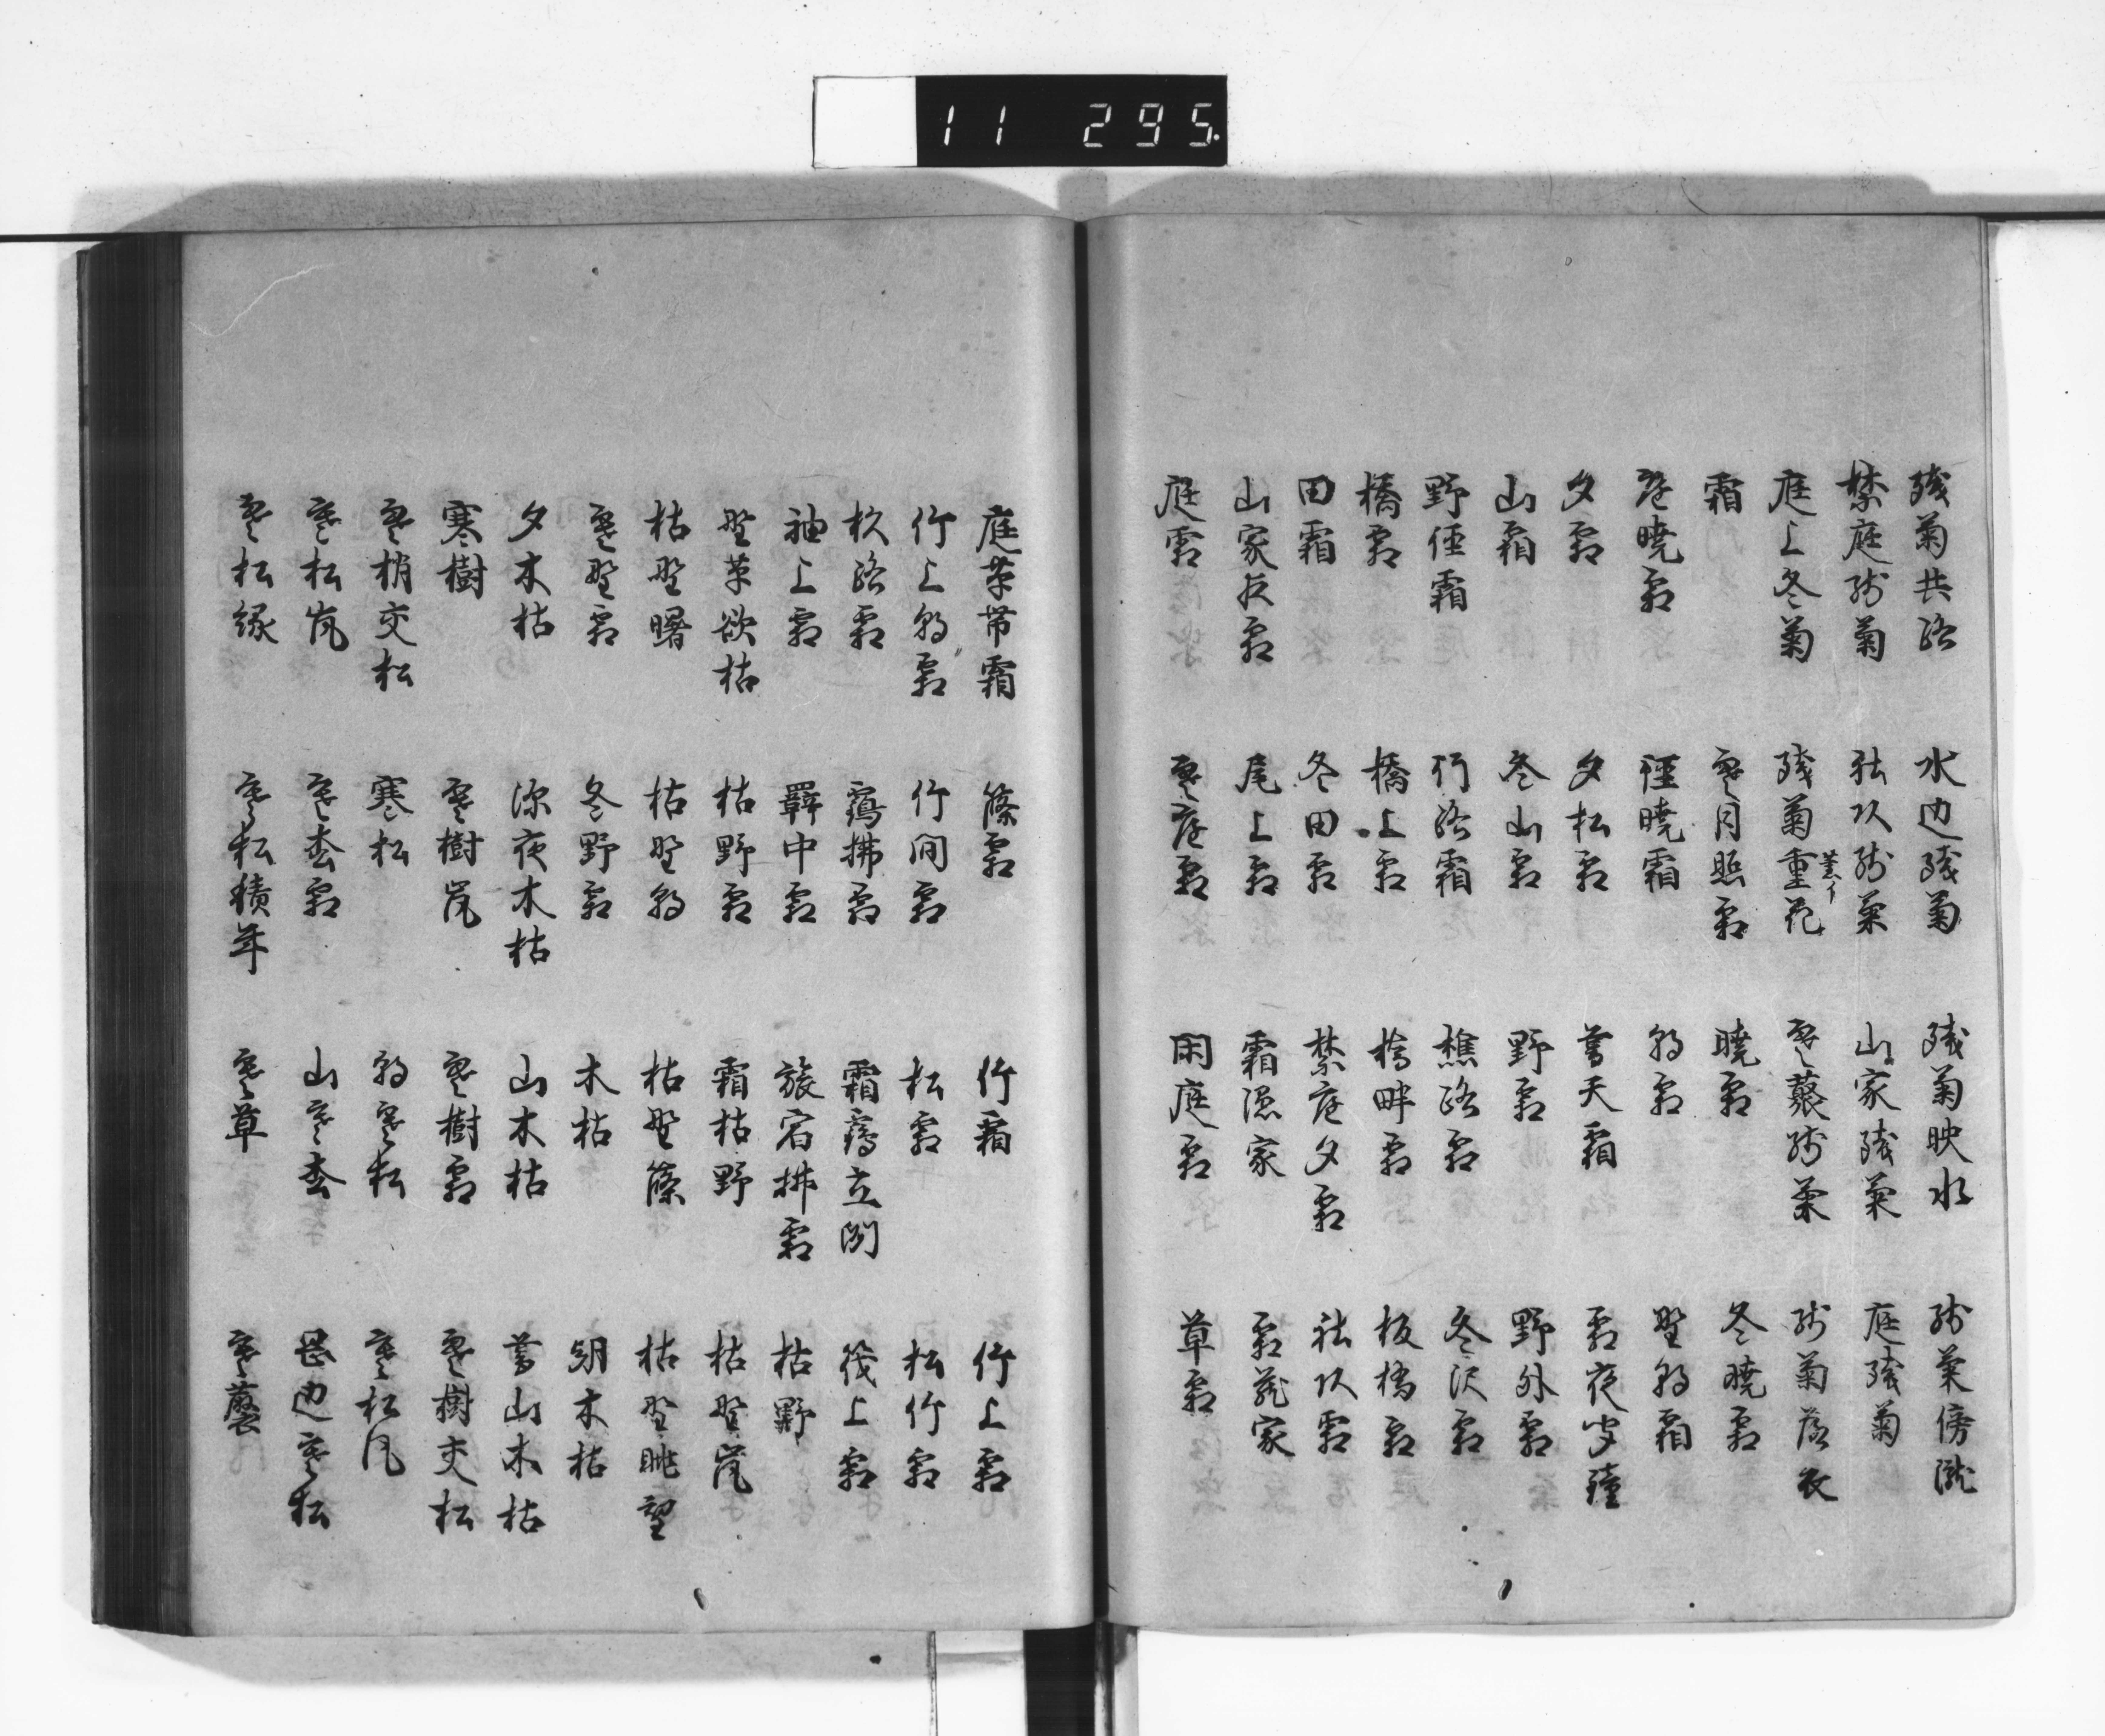 11 295
残菊共路 水辺残菊 残菊映水 残菊傍瀧
禁庭残菊 社頭残菊 山家残菊 庭残菊
庭上冬菊 残菊重花 寒藂残菊 残菊落衣
霜 寒月照霜 暁霜 冬暁霜
庭暁霜 径暁霜 朝霜 野朝霜
夕霜 夕松霜 暮天霜 霜夜聞鐘
山霜 冬山霜 野霜 野外霜
野径霜 行路霜 樵路霜 冬沢霜
橋霜 橋上霜 橋畔霜 板橋霜
田霜 冬田霜 禁庭夕霜 社頭霜
山家夜霜 尾上霜 霜隠家 霜荒家
庭霜 寒庭霜 閑庭霜 草霜
庭草帯霜 篠霜 竹霜 竹上霜
竹上朝霜 竹間霜 松霜 松竹霜
杦路霜 鶴払霜 霜鶴立洲 筏上霜
袖上霜 羇中霜 旅宿払霜 枯野
野草欲枯 枯野霜 霜枯野 枯野嵐
枯野曙 枯野朝 枯野篠 枯野眺望
寒野霜 冬野霜 木枯 朝木枯
夕木枯 深夜木枯 山木枯 暮山木枯
寒樹 寒樹嵐 寒樹霜 寒樹交松
寒梢交松 寒松 朝寒松 寒松風
寒松嵐 寒松霜 山寒松 岡辺寒松
寒松緑 寒松積年 寒草 寒蘆